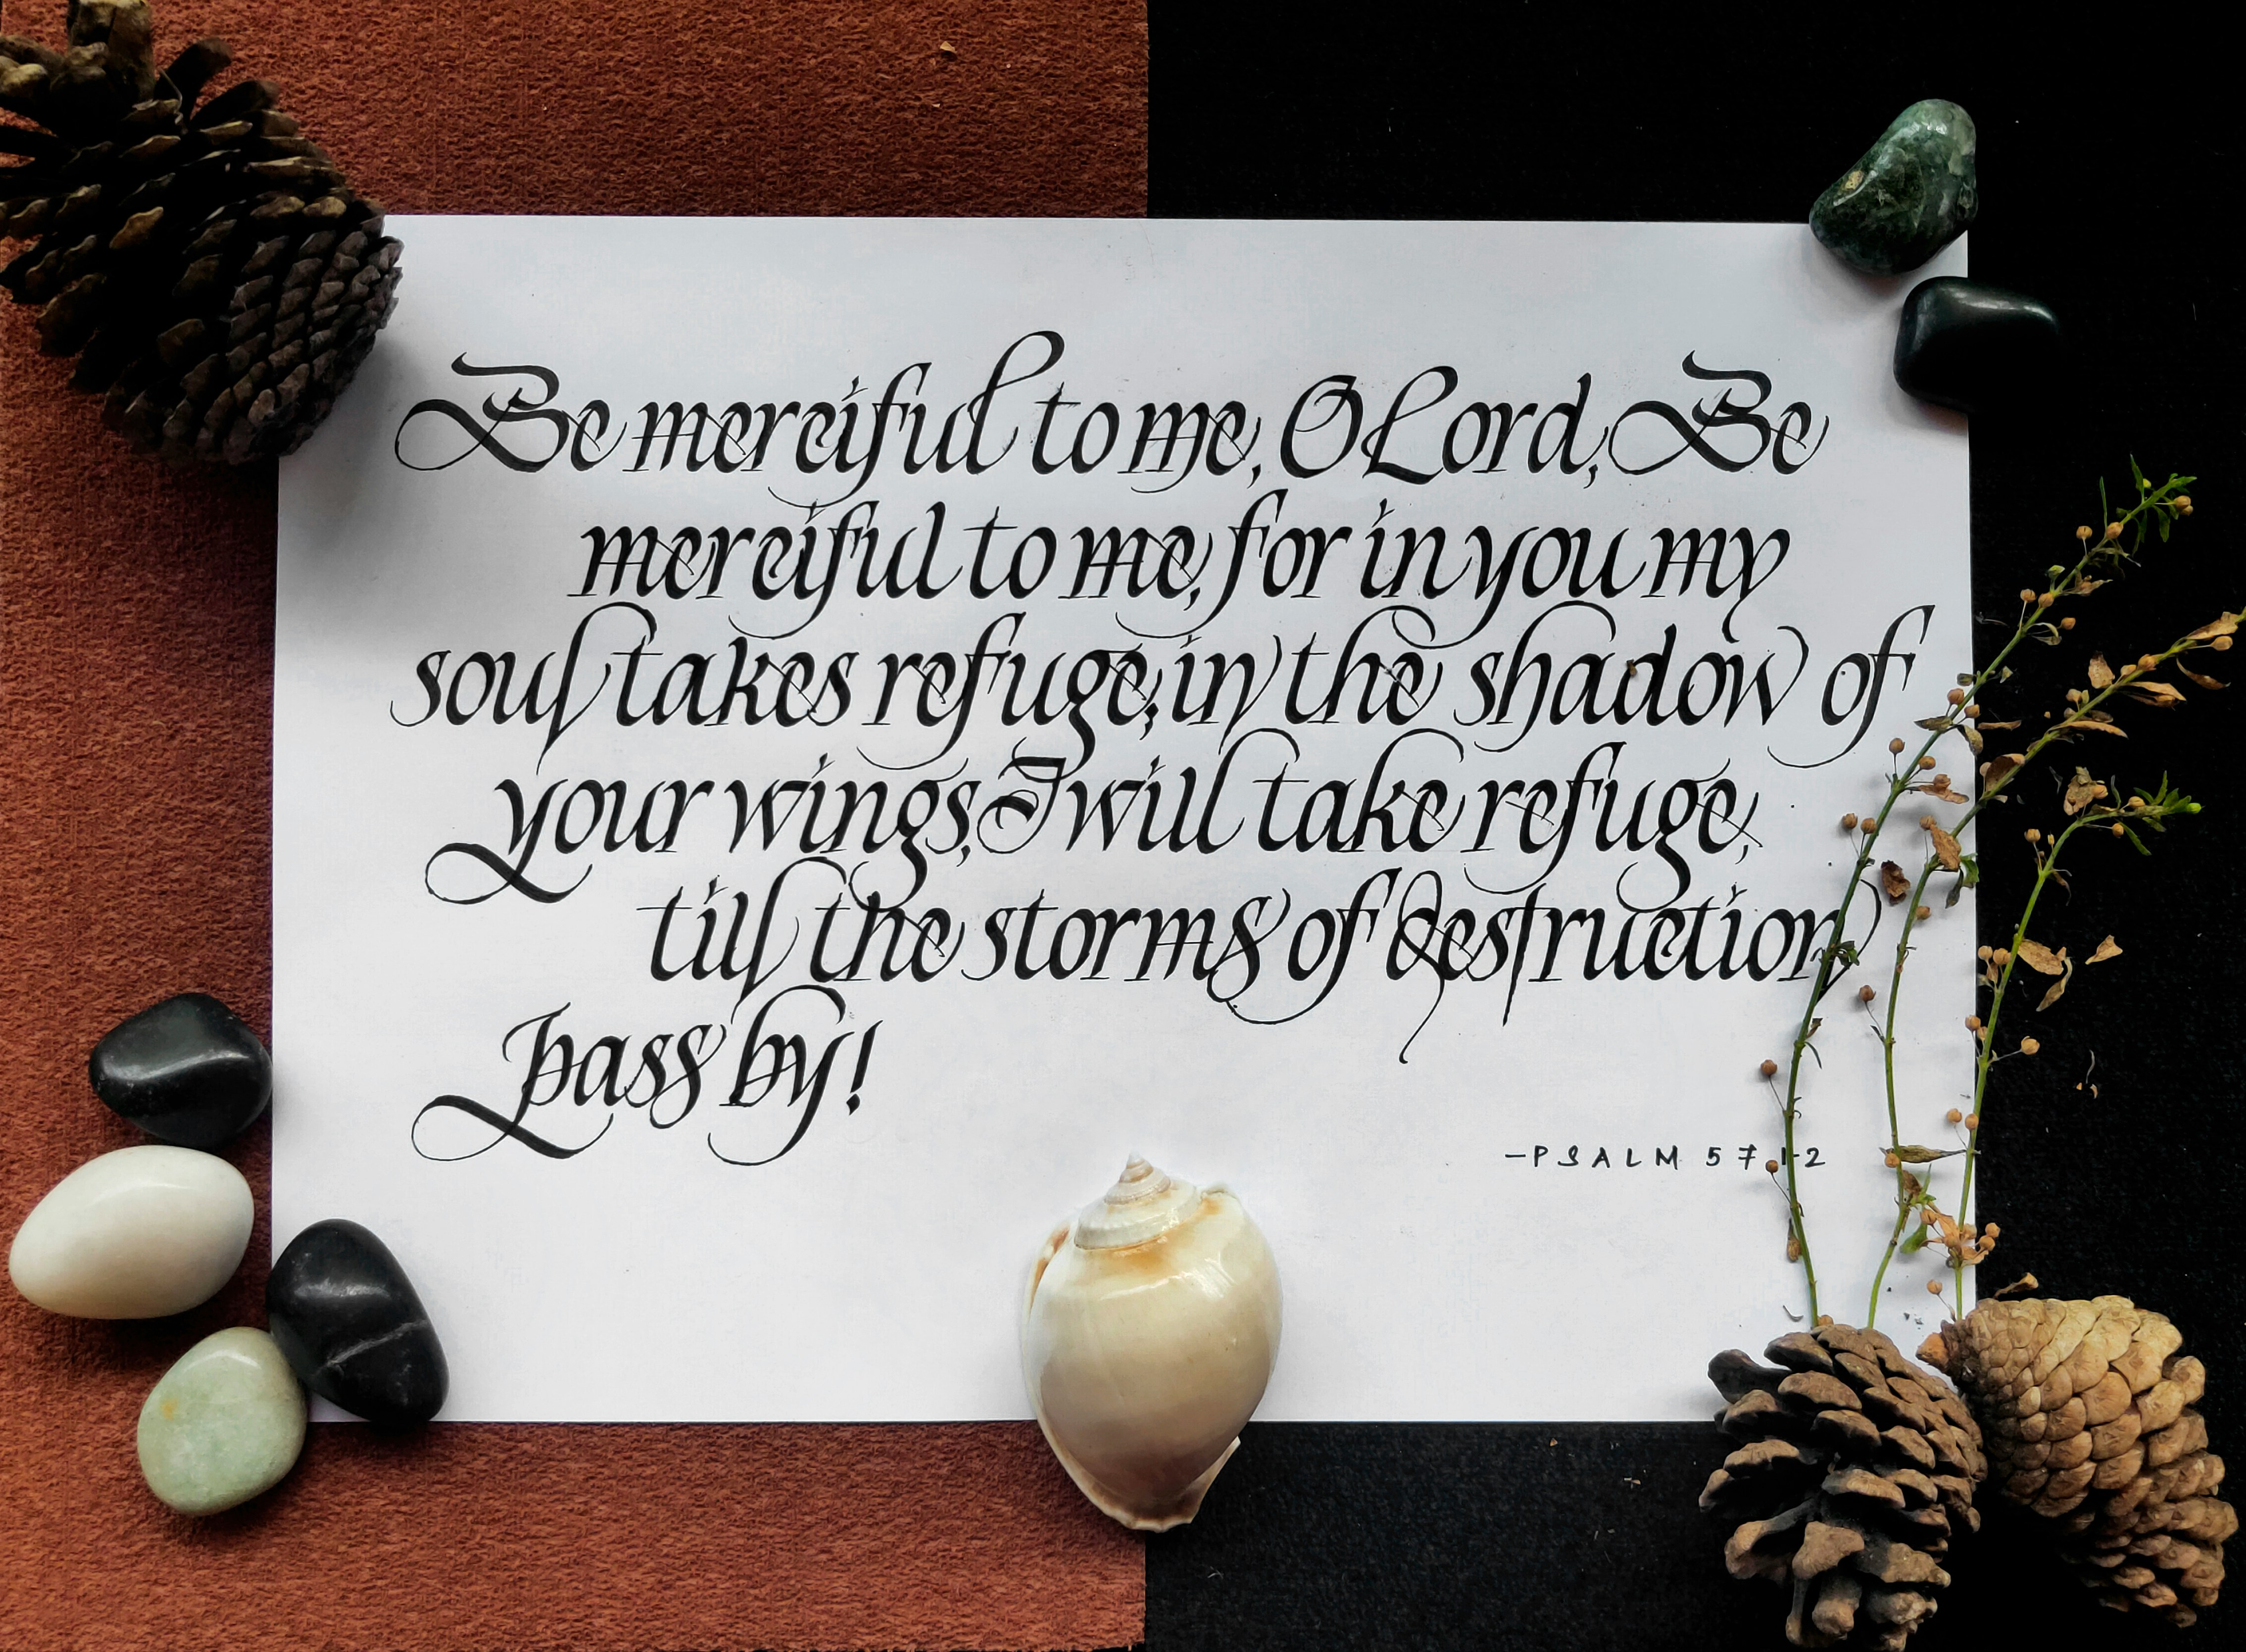 Be merciful to me, O Lord, Be
merciful to me, for in you my
soul takes refuge; in the shadow of
your wings, I will take refuge,
till the storms of destruction
pass by!
—PSALM 57,1-2